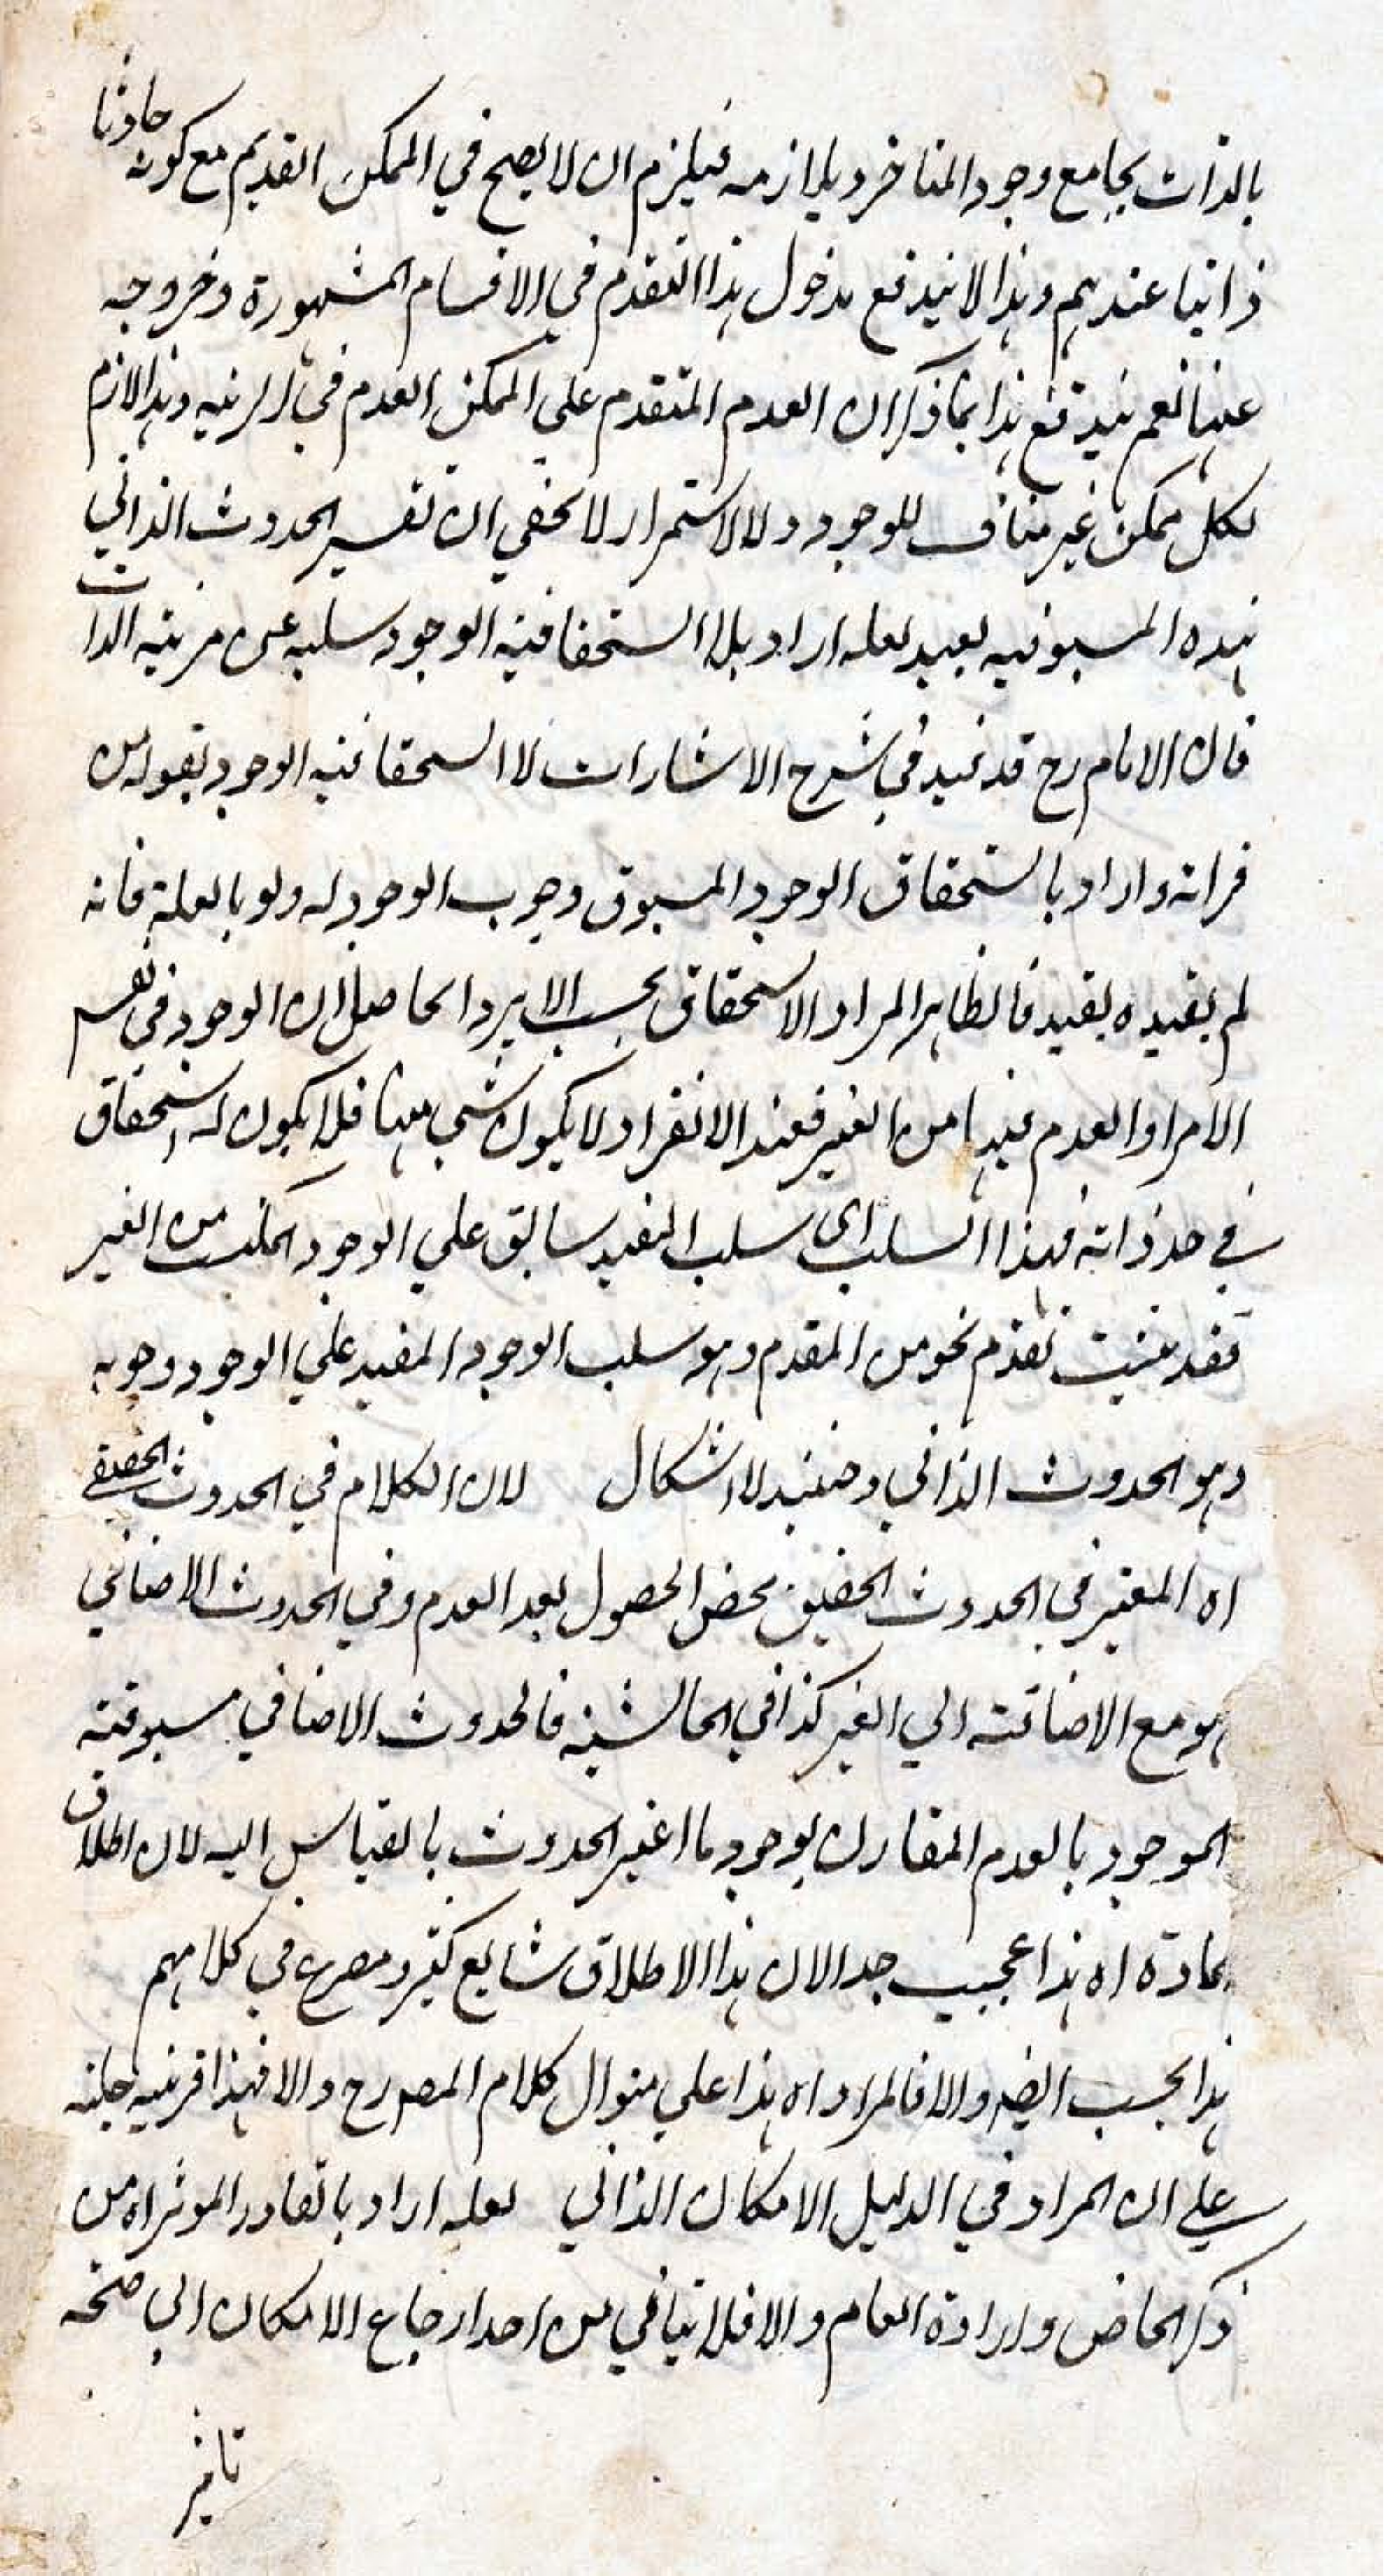 بالذات يجامع وجود المتاخر ويلازمه فيلزم ان لا يصح في الممكن القديم مع كونه حادثا
ذاتيا عندهم وهذا لا يندفع بدخول هذا التقدم في الاقسام المشهورة وخروجه
عنها نعم يندفع هذا بما ذكر ان العدم المتقدم علي الممكن العدم في المرتبه وهذا لازم
لكل ممكن غير مناف للوجود ولا لاستمرار لا يخفي ان تفسير الحدوث الذاتي
بهذه المسبوقيه بعيد لعله اراد بلا استحقاقية الوجود سلبه عن مرتبه الذات
قال الامام رح قد قيد في شرح الاشارات لا استحقاقيه الوجود بقوله من
ذاته واراد باستحقاق الوجود المسبوق وجوب الوجود له ولو بالعلة فانه
لم يقيده بقيد فالظاهر المراد الاستحقاق بحسب الا يرد الحاصل ان الوجود في نفس
الامر او العدم فيها من الغير فعند الانفراد لا يكون شي منها فلا يكون له استحقاق
في حد ذاته فهذا السلب اي سلب المقيد سابق علي الوجود المكتسب من الغير
فقد ثبت تقدم نحو من المقدم وهو سلب الوجود المقيد علي الوجود وجوبه
وهو الحدوث الذاتي وحينئذ لا اشكال لان الكلام في الحدوث الحقيقي
اه المعتبر في الحدوث الحقيقي محض الحصول بعد العدم وفي الحدوث الاضافي
هو مع الاضافته الي الغير كذا في الحاشيه فالحدوث الاضافي مسبوقية
الموجود بالعدم المقارن لوجود ما اعتبر الحدوث بالقياس اليه لان اطلاق
المادة اه هذا عجيب جدا لان هذا الاطلاق شايع كثير ومصرع في كلامهم
هذا بحسب ايضا والا فالمراد اه هذا علي منوال كلام المصرح والا فهذا قرينيه جلية
علي ان المراد في الدليل الامكان الذاتي لعله اراد بالقادر الموثر اه من
ذكر الخاص وارادة العام والا فلا ينافي من احد ارجاع الامكان الي صحة
تاثير